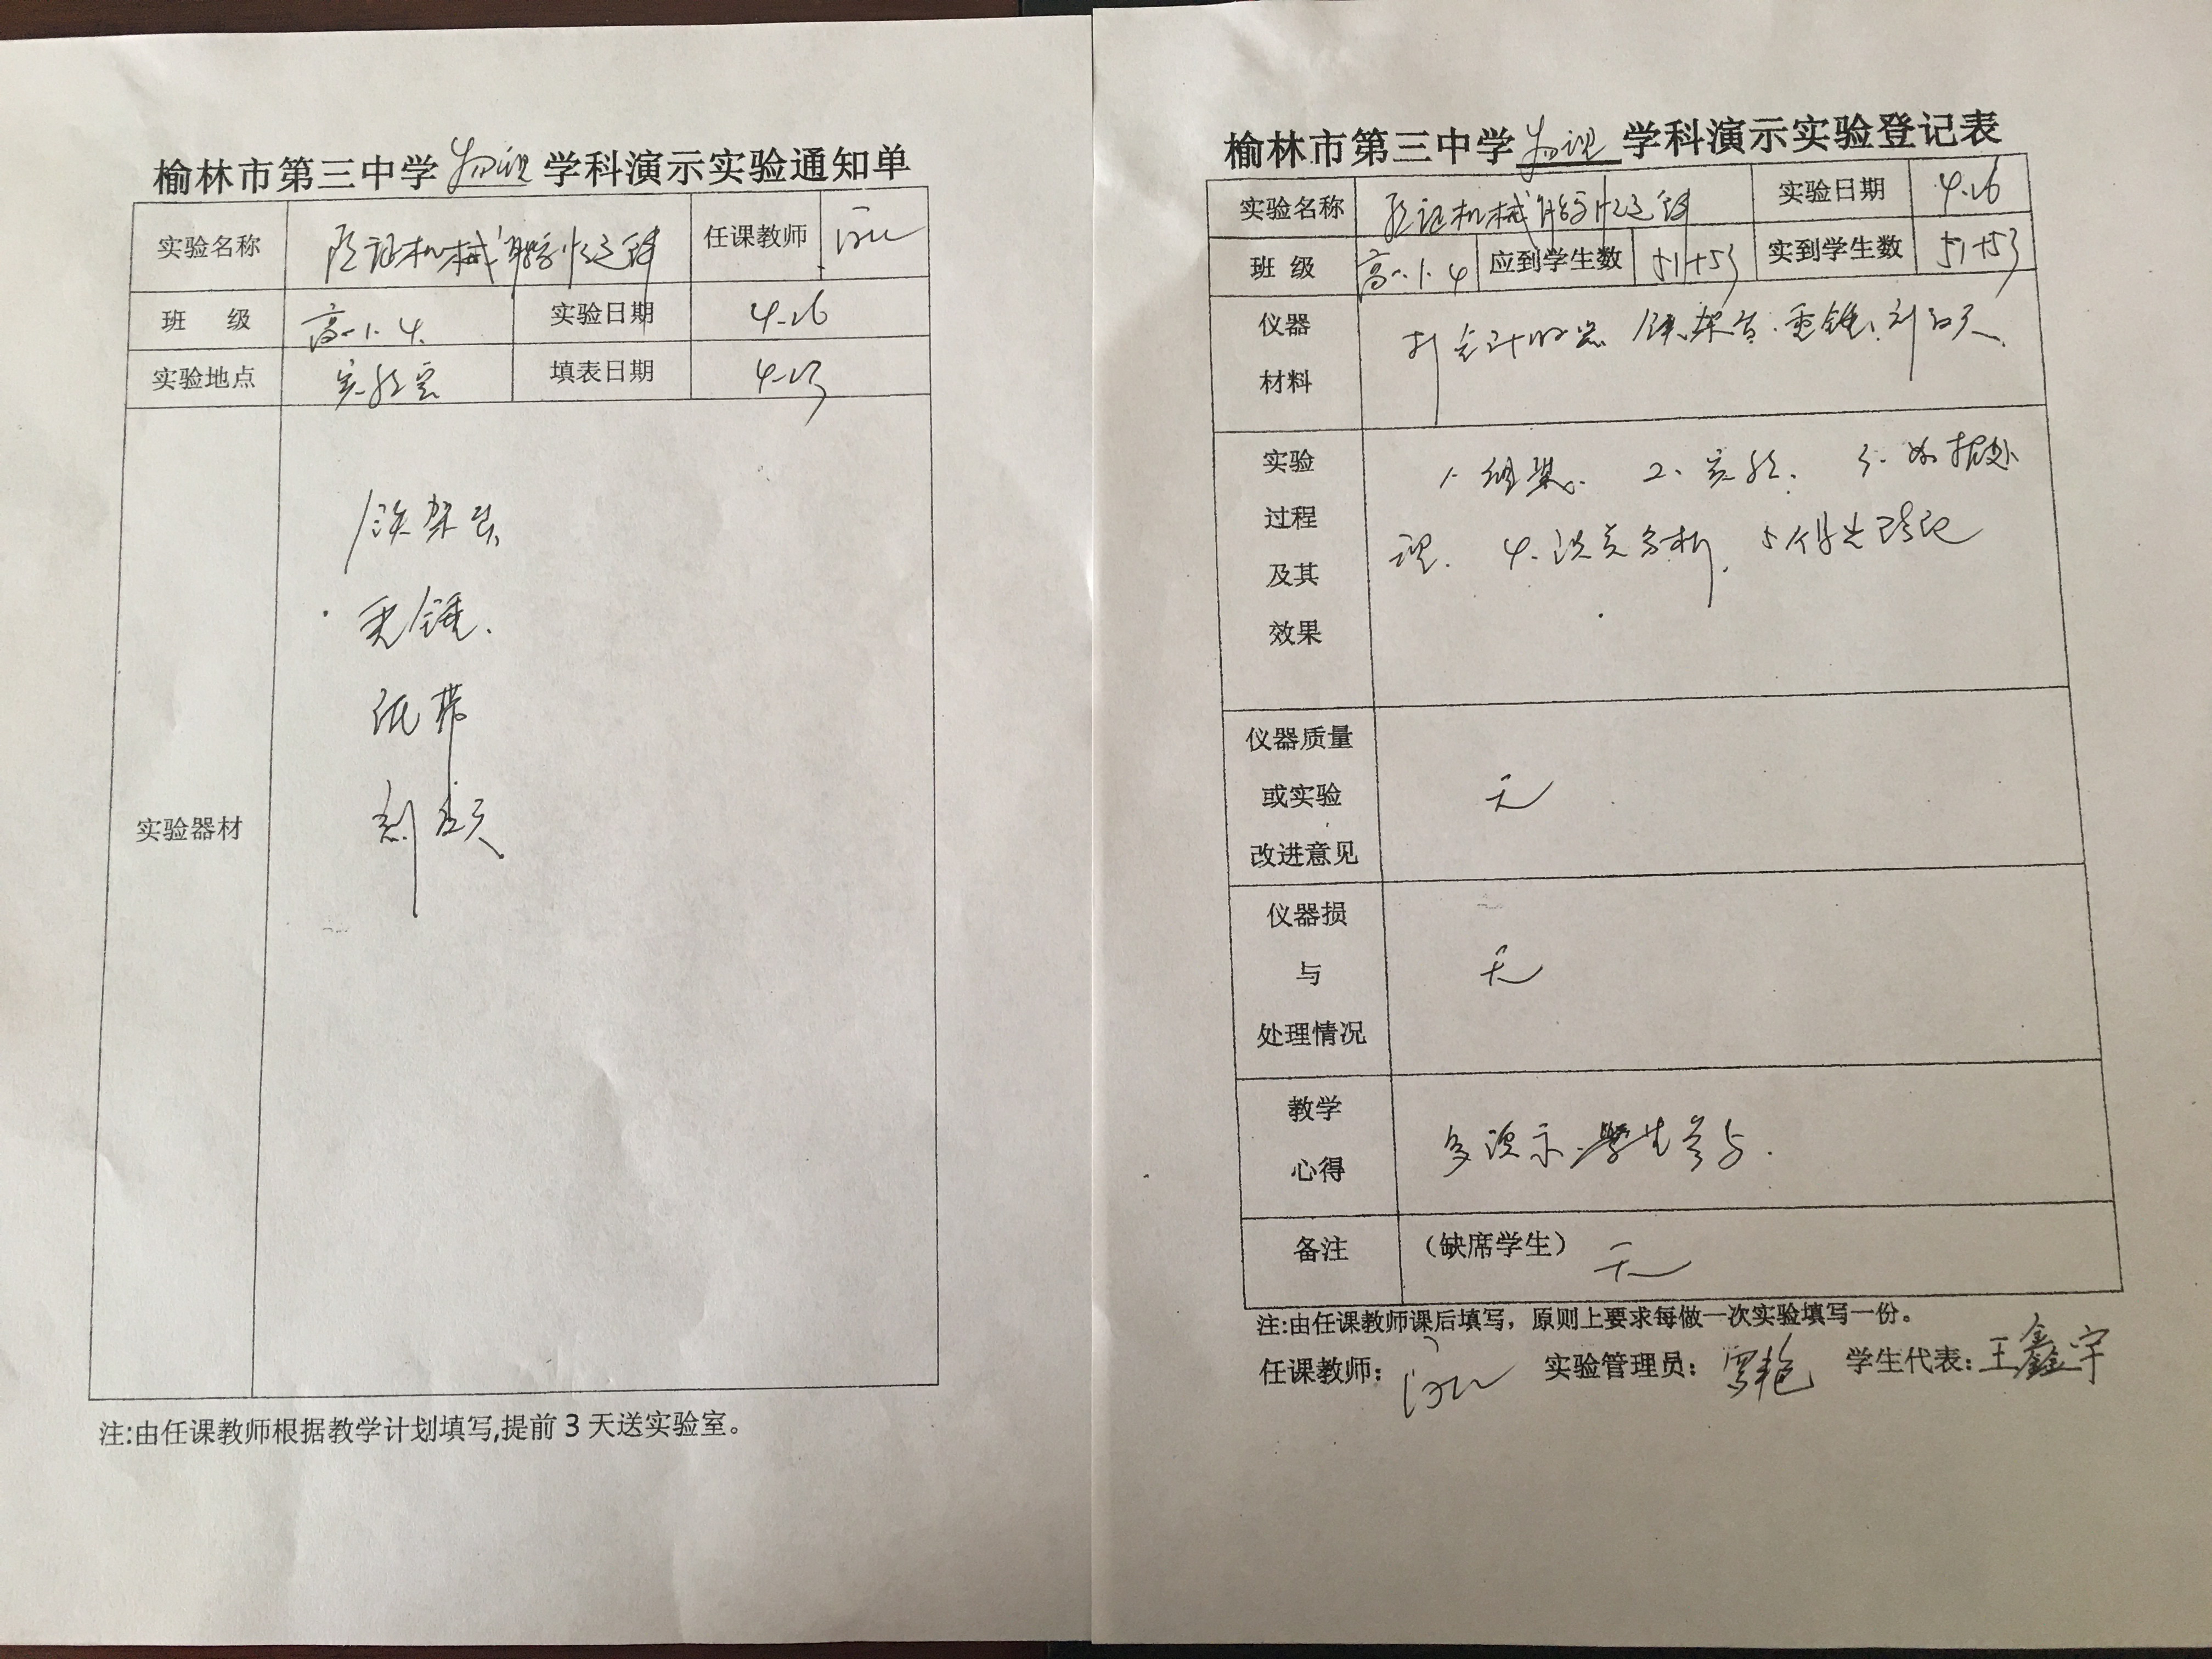 榆林市第三中学物理学科演示实验通知单
实验名称 验证机械能守恒定律 任课教师
班 级 高一1.4. 实验日期 4.26
实验地点 实验室 填表日期 4.23
实验器材
铁架台、
重锤、
纸带
刻度尺
注:由任课教师根据教学计划填写,提前3天送实验室。
榆林市第三中学物理学科演示实验登记表
实验名称 验证机械能守恒定律 实验日期 4.26
班 级 高一1.4 应到学生数 51+53 实到学生数 51+53
仪器
材料
打点计时器 铁架台、重锤、刻度尺、
实验
过程
及其
效果
1、组装、 2、实验、 3、数据处
理、 4、误差分析、 5、得出结论
仪器质量
或实验
改进意见
无
仪器损
与
处理情况
无
教学
心得
多演示、学生参与.
备注 (缺席学生) 无
注:由任课教师课后填写，原则上要求每做一次实验填写一份。
任课教师: 实验管理员: 学生代表: 王鑫宇